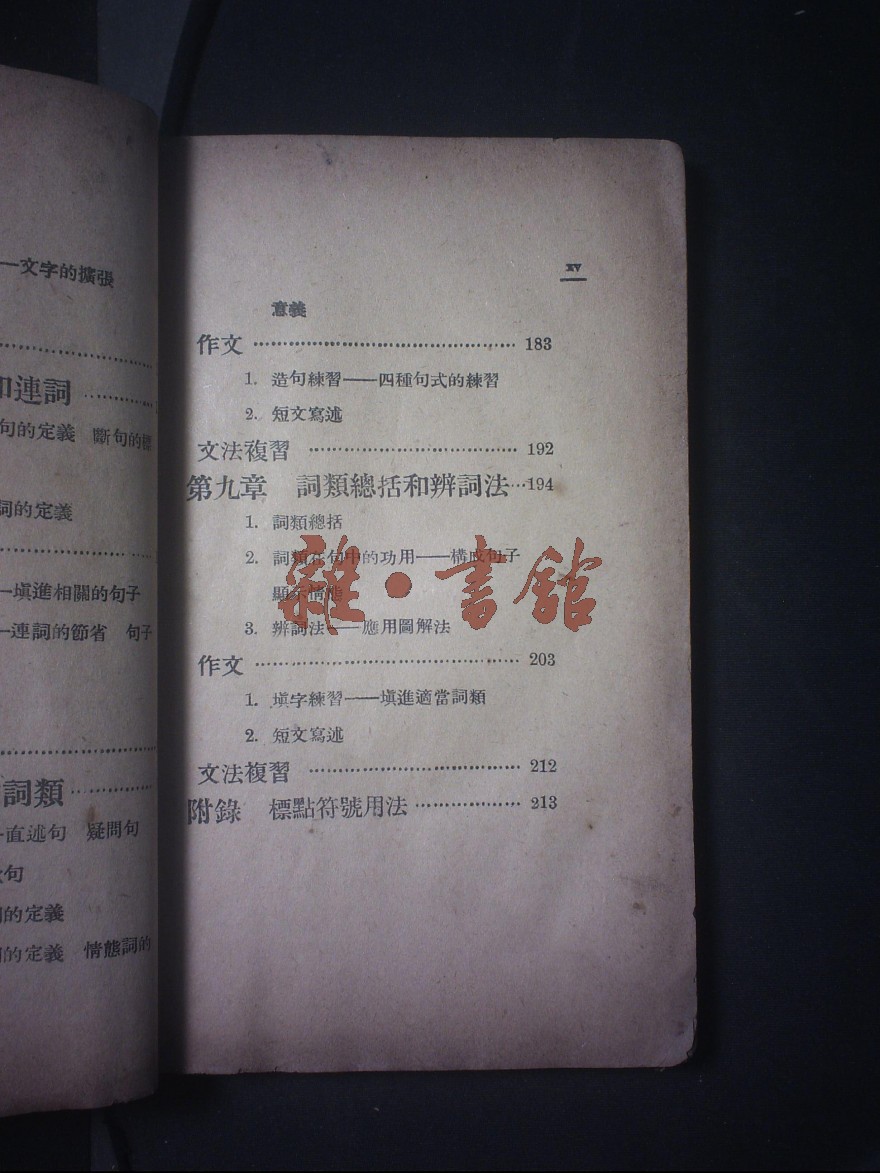 一文字的擴張
和連詞
句的定義 斷句的標
詞的定義
一塡進相關的句子
一連詞的節省 句子
詞類
一直述句 疑問句
句
的定義
的定義 情態詞的
xv
意義
作文 …………………………………… 183
1. 造句練習——四種句式的練習
2. 短文寫述
文法複習 …………………………… 192
第九章 詞類總括和辨詞法…194
1. 詞類總括
2. 詞類在句中的功用——構成句子
顯示情態
3. 辨詞法——應用圖解法
作文 …………………………………… 203
1. 塡字練習——塡進適當詞類
2. 短文寫述
文法複習 …………………………… 212
附錄 標點符號用法 ……………… 213
雜·書館